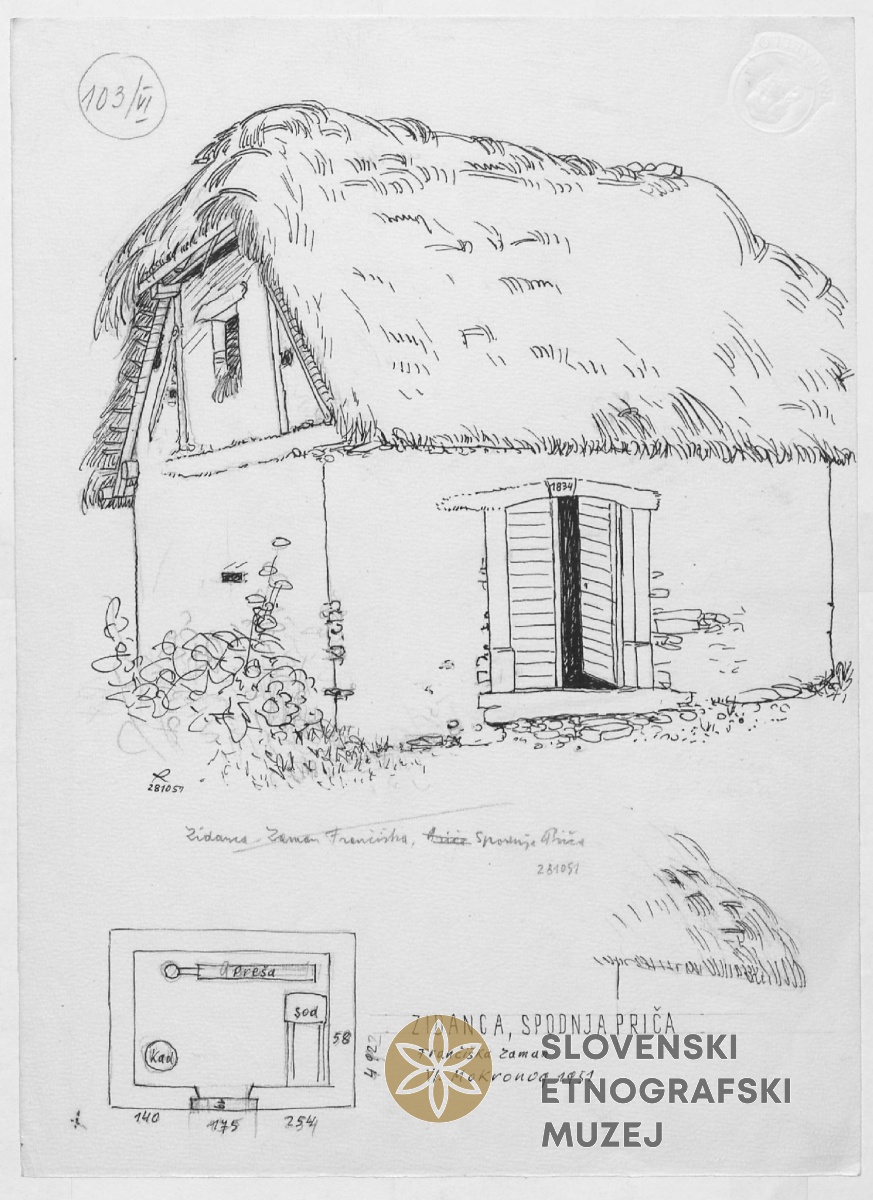 103/VI
1834
281051
Zidanca - Zaman Frančiška, Spodnja Priča
281051
Preša
Sod
Kad
58
492
140
175
254
ZIDANCA, SPODNJA PRIČA
Frančiška Zaman
VI. Mokronog 1951
SLOVENSKI
ETNOGRAFSKI
MUZEJ